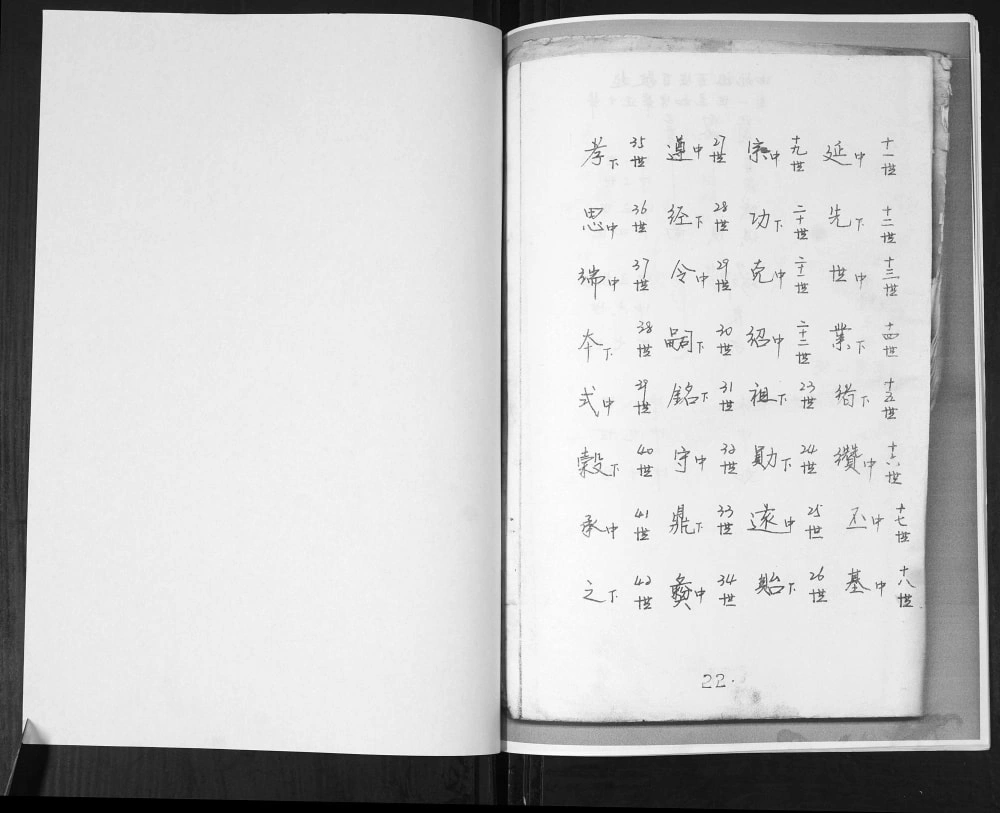 十一世 十二世 十三世 十四世 十五世 十六世 十七世 十八世
延中 先下 世中 業下 绪下 纘中 丕中 基中
十九世 二十世 二十一世 二十二世 23世 24世 25世 26世
宗中 功下 克中 紹中 祖下 勛下 遂中 貽下
27世 28世 29世 30世 31世 32世 33世 34世
遵中 经下 令中 嗣下 銘下 守中 鼎下 彝中
35世 36世 37世 38世 39世 40世 41世 42世
孝下 思中 端中 本下 式中 榖下 承中 之下
22.